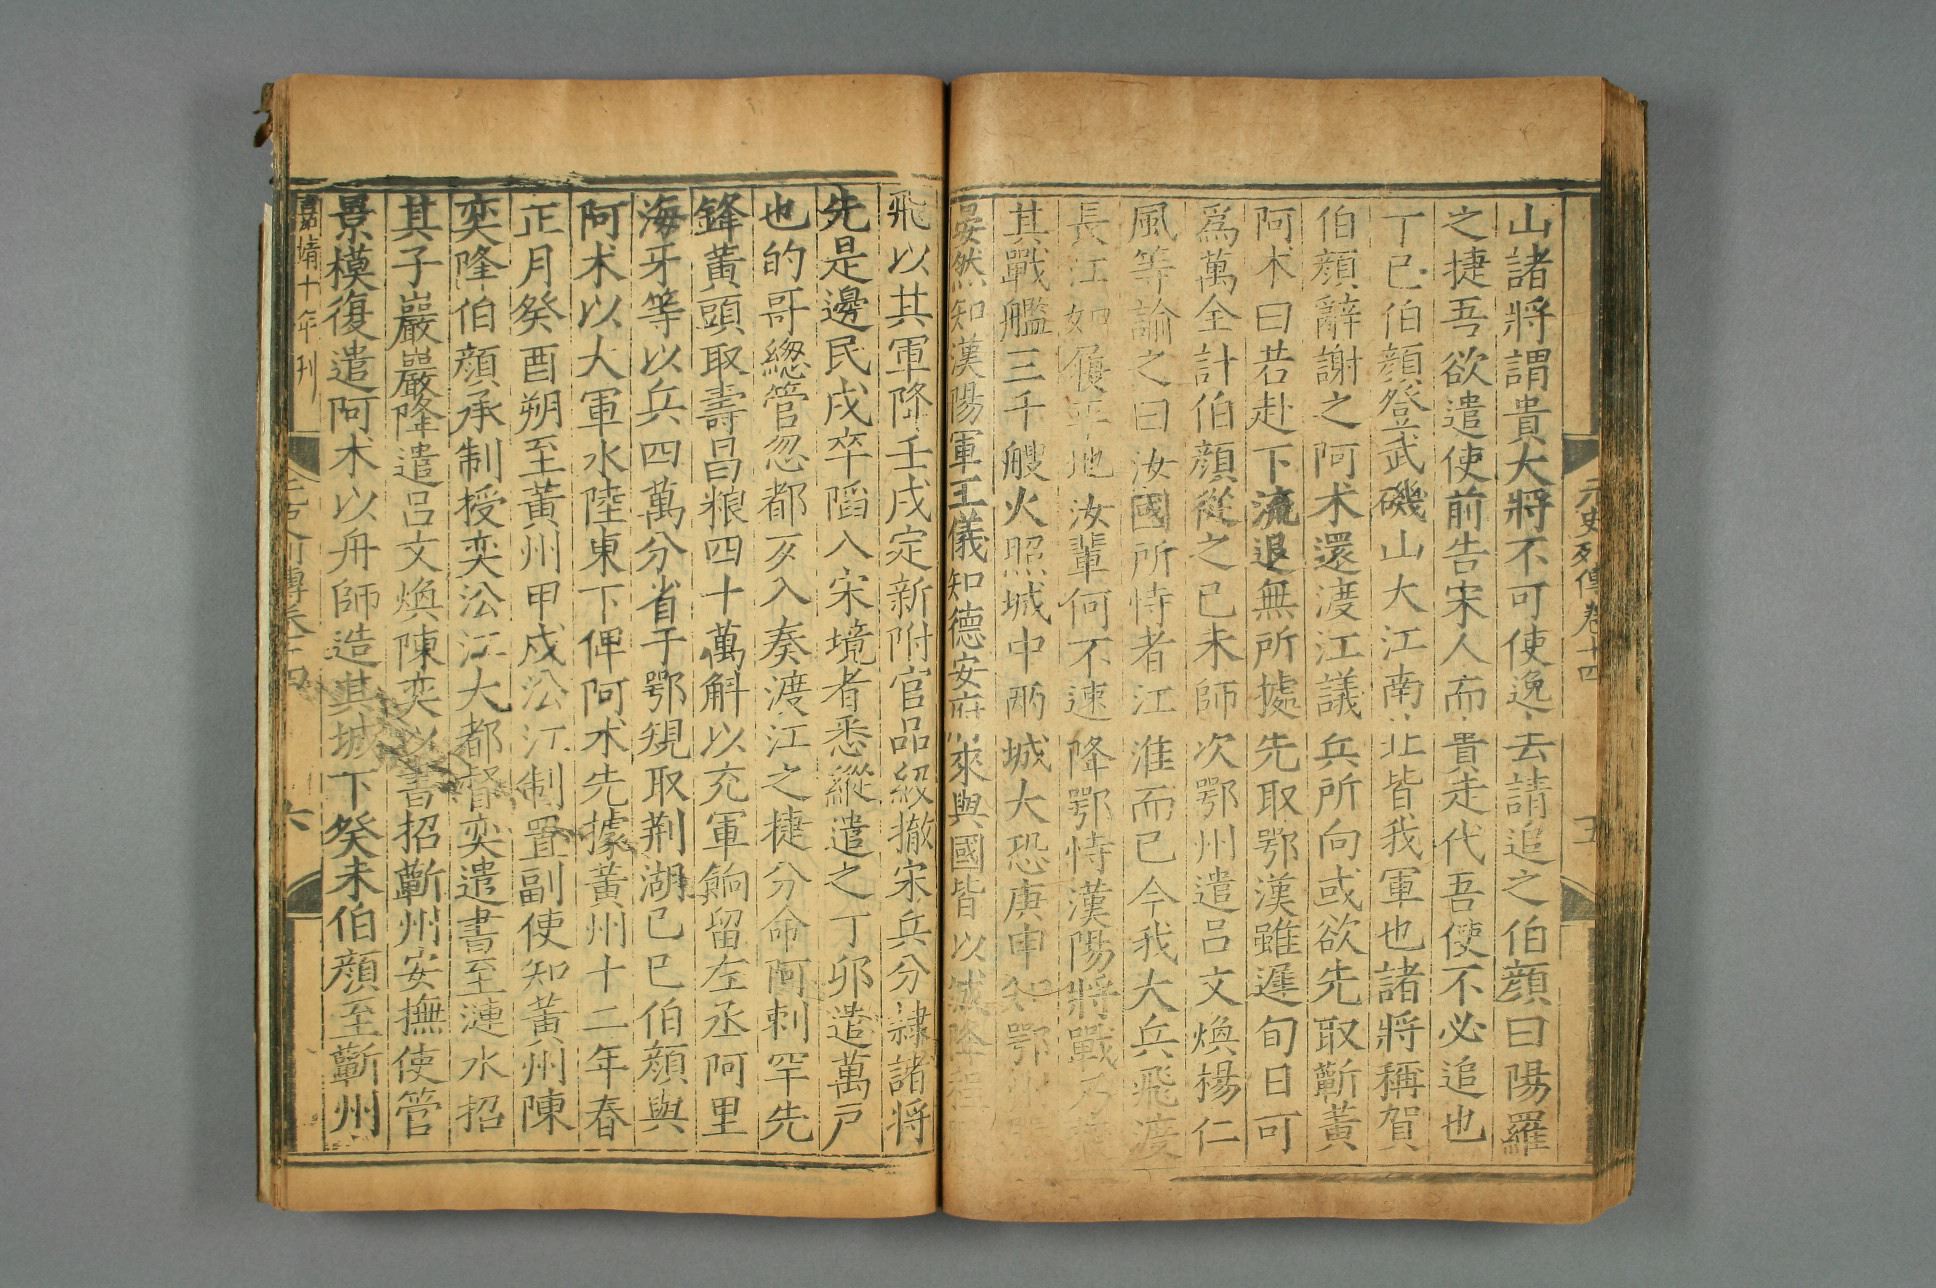 元史列傳卷十四
五
山諸將謂貴大將不可使逸去請追之伯顔曰陽羅
之捷吾欲遣使前告宋人而貴走代吾使不必追也
丁巳伯顔登武磯山大江南北皆我軍也諸將稱賀
伯顔辭謝之阿术還渡江議兵所向或欲先取蘄黃
阿术曰若赴下流退無所據先取鄂漢雖遲旬日可
爲萬全計伯顔從之已未師次鄂州遣吕文煥楊仁
風等諭之曰汝國所恃者江淮而已今我大兵飛渡
長江如履平地汝輩何不速降鄂恃漢陽將戰乃焚
其戰艦三千艘火照城中兩城大恐庚申知鄂州
晏然知漢陽軍王儀知德安府來興國皆以城降程
飛以其軍降壬戌定新附官品級撤宋兵分隸諸將
先是邊民戍卒䧟入宋境者悉縱遣之丁卯遣萬戶
也的哥緫管忽都歹入奏渡江之捷分命阿剌罕先
鋒黃頭取壽昌粮四十萬斛以充軍餉留左丞阿里
海牙等以兵四萬分省于鄂規取荆湖已巳伯顔與
阿术以大軍水陸東下俾阿术先據黃州十二年春
正月癸酉朔至黃州甲戌㳂江制置副使知黃州陳
奕降伯顔承制授奕㳂江大都督奕遣書至漣水招
其子巖巖降遣吕文煥陳奕以書招蘄州安撫使管
景模復遣阿术以舟師造其城下癸未伯顔至蘄州
嘉靖十年刊
元史列傳卷十四
六